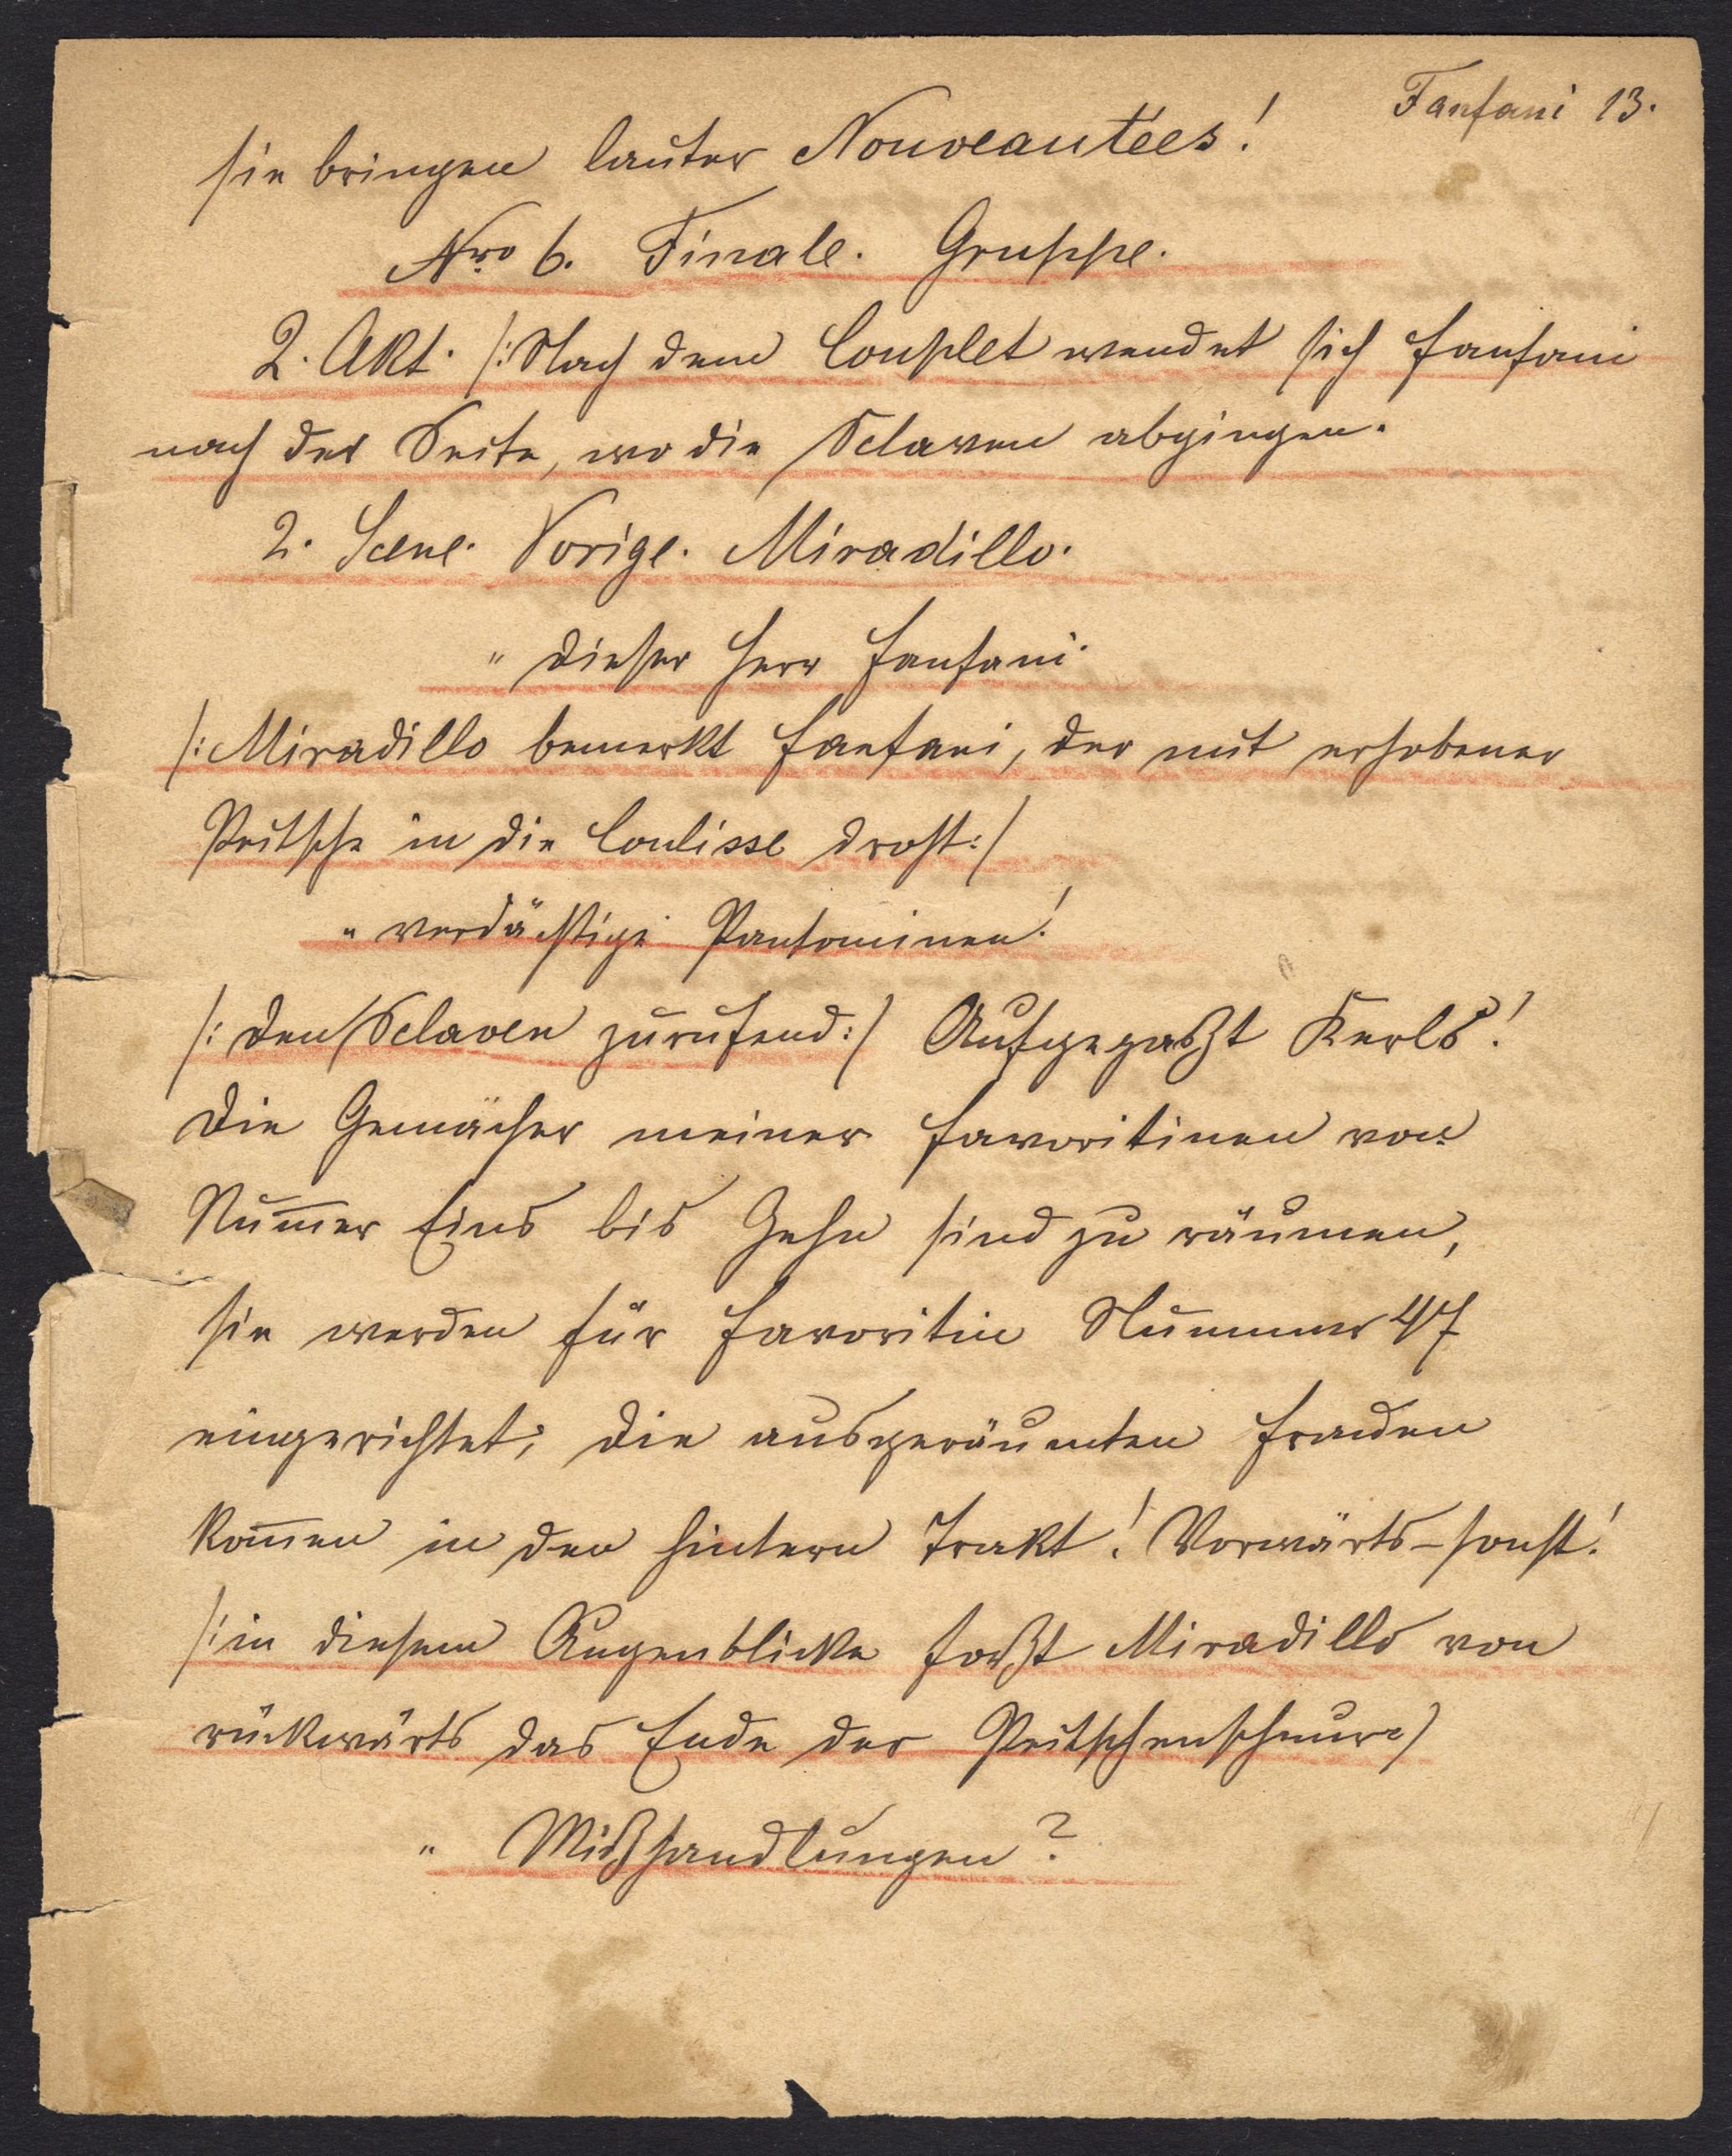 Fanfani 13.
sie bringen lauter Nouveautées!
Nro 6. Finale. Gruppe.
2. Akt. /: Nach dem Couplet wendet sich Fanfani
nach der Seite, wo die Sclaven abgingen.
2. Scene. Vorige. Miradillo.
" dieser Herr Fanfani.
/: Miradillo bemerkt Fanfani, der mit erhobener
Peitsche in die Coulisse droht :/
" verdächtige Pantominen!
/: den Sclaven zurufend :/ Aufgepaßt Kerls!
Die Gemächer meiner Favoritinen von
Num̅er Eins bis Zehn sind zu räumen,
sie werden für Favoritin Nummer 47
eingerichtet; die ausgeräumten Frauen
kom̅en in den hintern Trakt! Vorwärts - sonst!
/: in diesem Augenblicke faßt Miradillo von
rückwärts das Ende der Peitschenschnur :/
" Mißhandlungen?